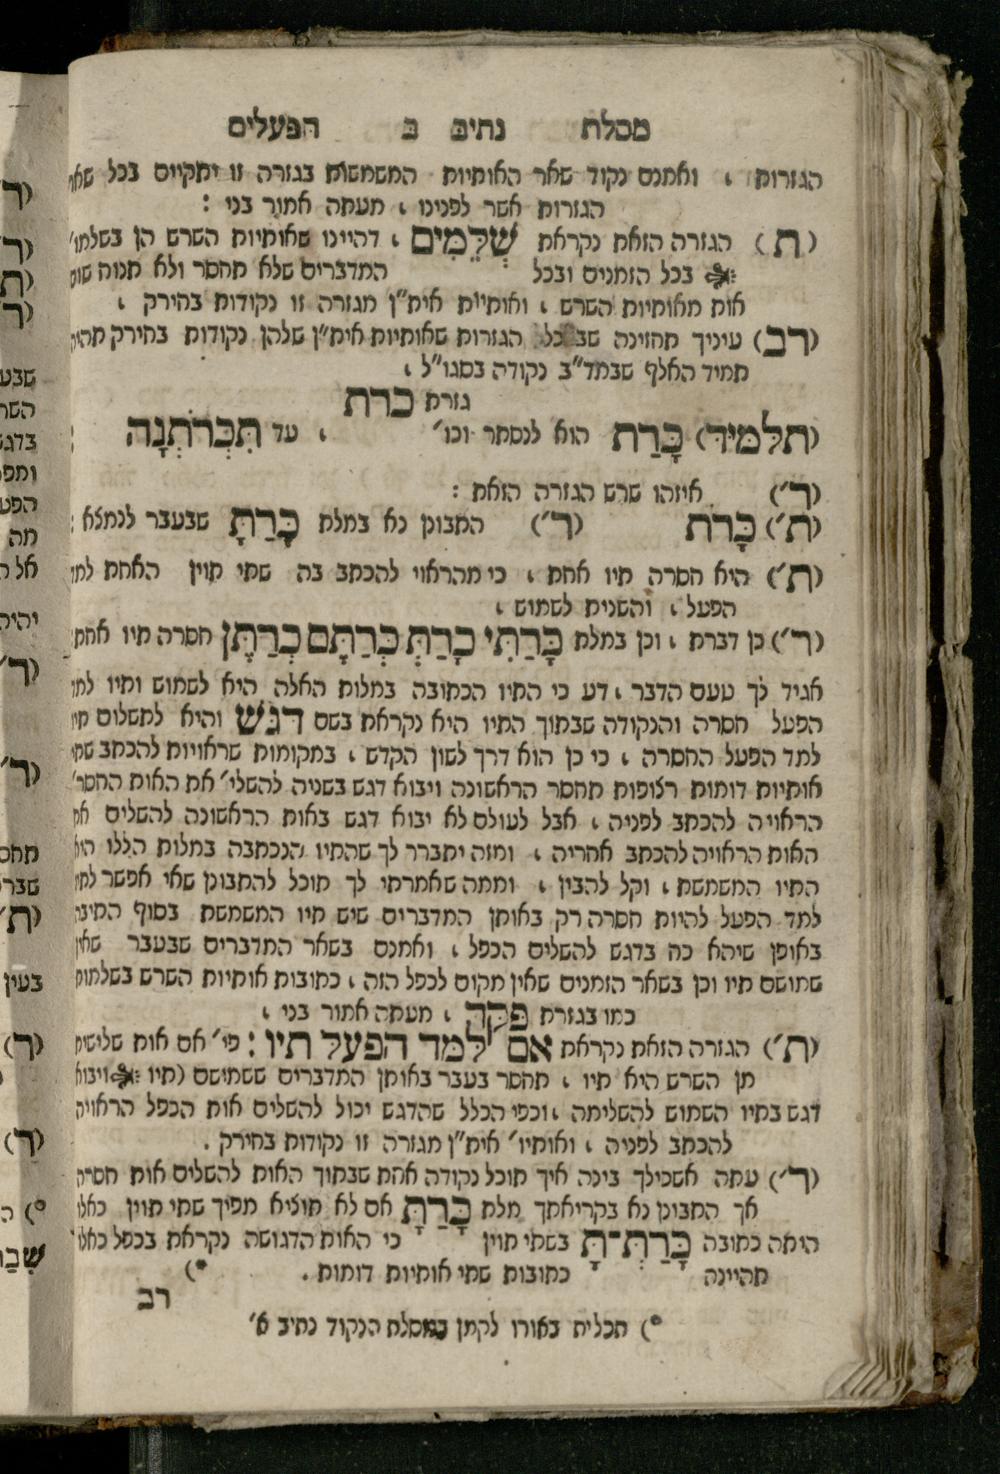 מסלת נתיב ב הפעלים
הגזרות , ואמנם נקוד שאר האותיות המשמשות בגזרה זו יתקיים בכל שאר
הגזרות אשר לפנינו , מעתה אמור בני :
(ת) הגזרה הזאת נקראת שְׁלֵמִים , דהיינו שאותיות השרש הן בשלמו׳
בכל הזמנים ובכל המדברים שלא תחסר ולא תנוח שום
אות מאותיות השרש , ואותיות אית״ן מגזרה זו נקודות בחירק ,
(רב) עיניך תחזינה שבכל הגזרות שאותיות אית״ן שלהן נקודות בחירק תהיה
תמיד האלף שבמד״ב נקודה בסגו״ל ,
גזרת כרת
(תלמיד) כָּרַת הוא לנסתר וכו׳ , עד תִּכְרֹתְנָה :
(ר׳) איזהו שרש הגזרה הזאת :
(ת׳) כָּרת (ר׳) התבונן נא במלת כָּרַתָּ שבעבר לנמצא :
(ת׳) היא חסרה תיו אחת , כי מהראוי להכתב בה שתי תוין האחת למד
הפעל , והשנית לשמוש ,
(ר׳) כן דברת , וכן במלת כָּרַתִּי כָרַתְּ כְּרַתֶּם כְרַתֶּן חסרה תיו אחת
אגיד לך טעם הדבר , דע כי התיו הכתובה במלות האלה היא לשמוש ותיו למד
הפעל חסרה והנקודה שבתוך התיו היא נקראת בשם דגש והיא לתשלום תיו
למד הפעל החסרה , כי כן הוא דרך לשון הקדש , במקומות שראויות להכתב שתי
אותיות דומות רצופות תחסר הראשונה ויבוא דגש בשניה להשלי׳ את האות החסר׳
הראויה להכתב לפניה , אבל לעולם לא יבוא דגש באות הראשונה להשלים את
האות הראויה להכתב אחריה , ומזה יתברר לך שהתיו הנכתבה במלות הללו היא
התיו המשמשת , וקל להבין , וממה שאמרתי לך תוכל להתבונן שאי אפשר לתיו
למד הפעל להיות חסרה רק באותן המדברים שיש תיו המשמשת בסוף התיבה
באופן שיהא כח בדגש להשלים הכפל , ואמנם בשאר המדברים שבעבר שאין
שמושם תיו וכן בשאר הזמנים שאין מקום לכפל הזה , כתובות אותיות השרש בשלמות
כמו בגזרת פקד , מעתה אמור בני ,
(ת׳) הגזרה הזאת נקראת אם למד הפעל תיו : פי׳ אם אות שלישית
מן השרש היא תיו , תחסר בעבר באותן המדברים ששמושם (תיו ויבוא
דגש בתיו השמוש להשלימה , וכפי הכלל שהדגש יכול להשלים אות הכפל הראויה
להכתב לפניה , ואותיו׳ אית״ן מגזרה זו נקודות בחירק .
(ר׳) עתה אשכילך בינה איך תוכל נקודה אחת שבתוך האות להשלים אות חסרה
אך התבונן נא בקריאתך מלת כָּרַתָּ אם לא תוציא מפיך שתי תוין כאלו
היתה כתובה כָּרַתְּ־תָּ בשתי תוין כי האות הדגושה נקראת בכפל כאלו
תהיינה כתובות שתי אותיות דומות . *)
רב
*) תכלית באורו לקמן במסלת הנקוד נתיב א׳